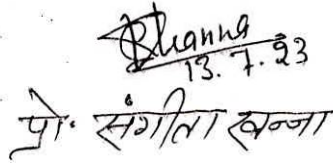 Khanna
13.7.23
प्रो. संगीता खन्ना